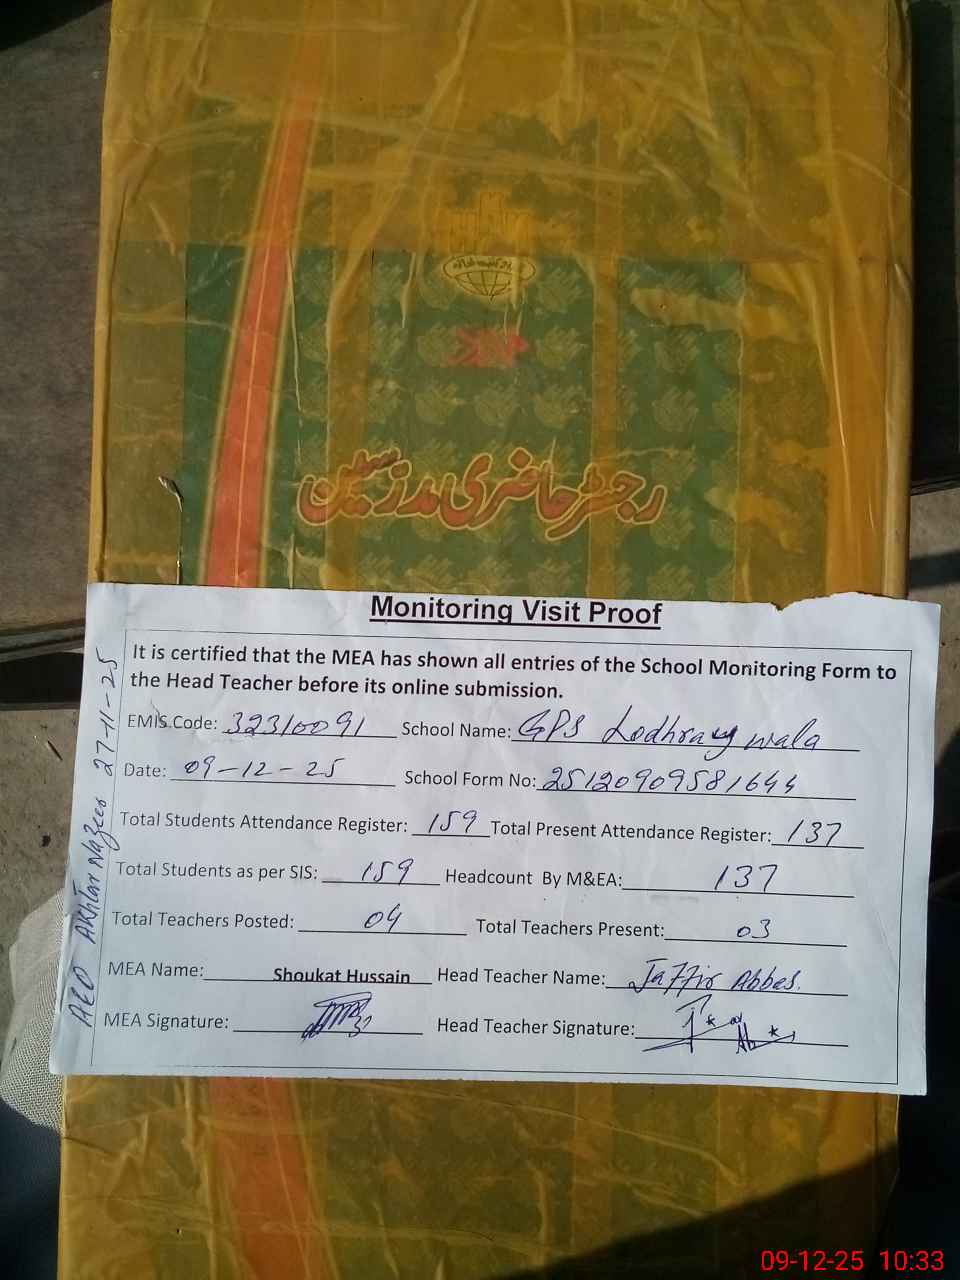 رجسٹر حاضری مدرسین
Monitoring Visit Proof
It is certified that the MEA has shown all entries of the School Monitoring Form to
the Head Teacher before its online submission.
EMIS Code: 32310091 School Name: GPS Lodhray wala
Date: 09-12-25 School Form No: 25120909581644
Total Students Attendance Register: 159 Total Present Attendance Register: 137
Total Students as per SIS: 159 Headcount By M&EA: 137
Total Teachers Posted: 04 Total Teachers Present: 03
MEA Name: Shoukat Hussain Head Teacher Name: Jaffir Abbas.
MEA Signature: Head Teacher Signature:
AEO Akhtar Nazeer 27-11-25
09-12-25 10:33